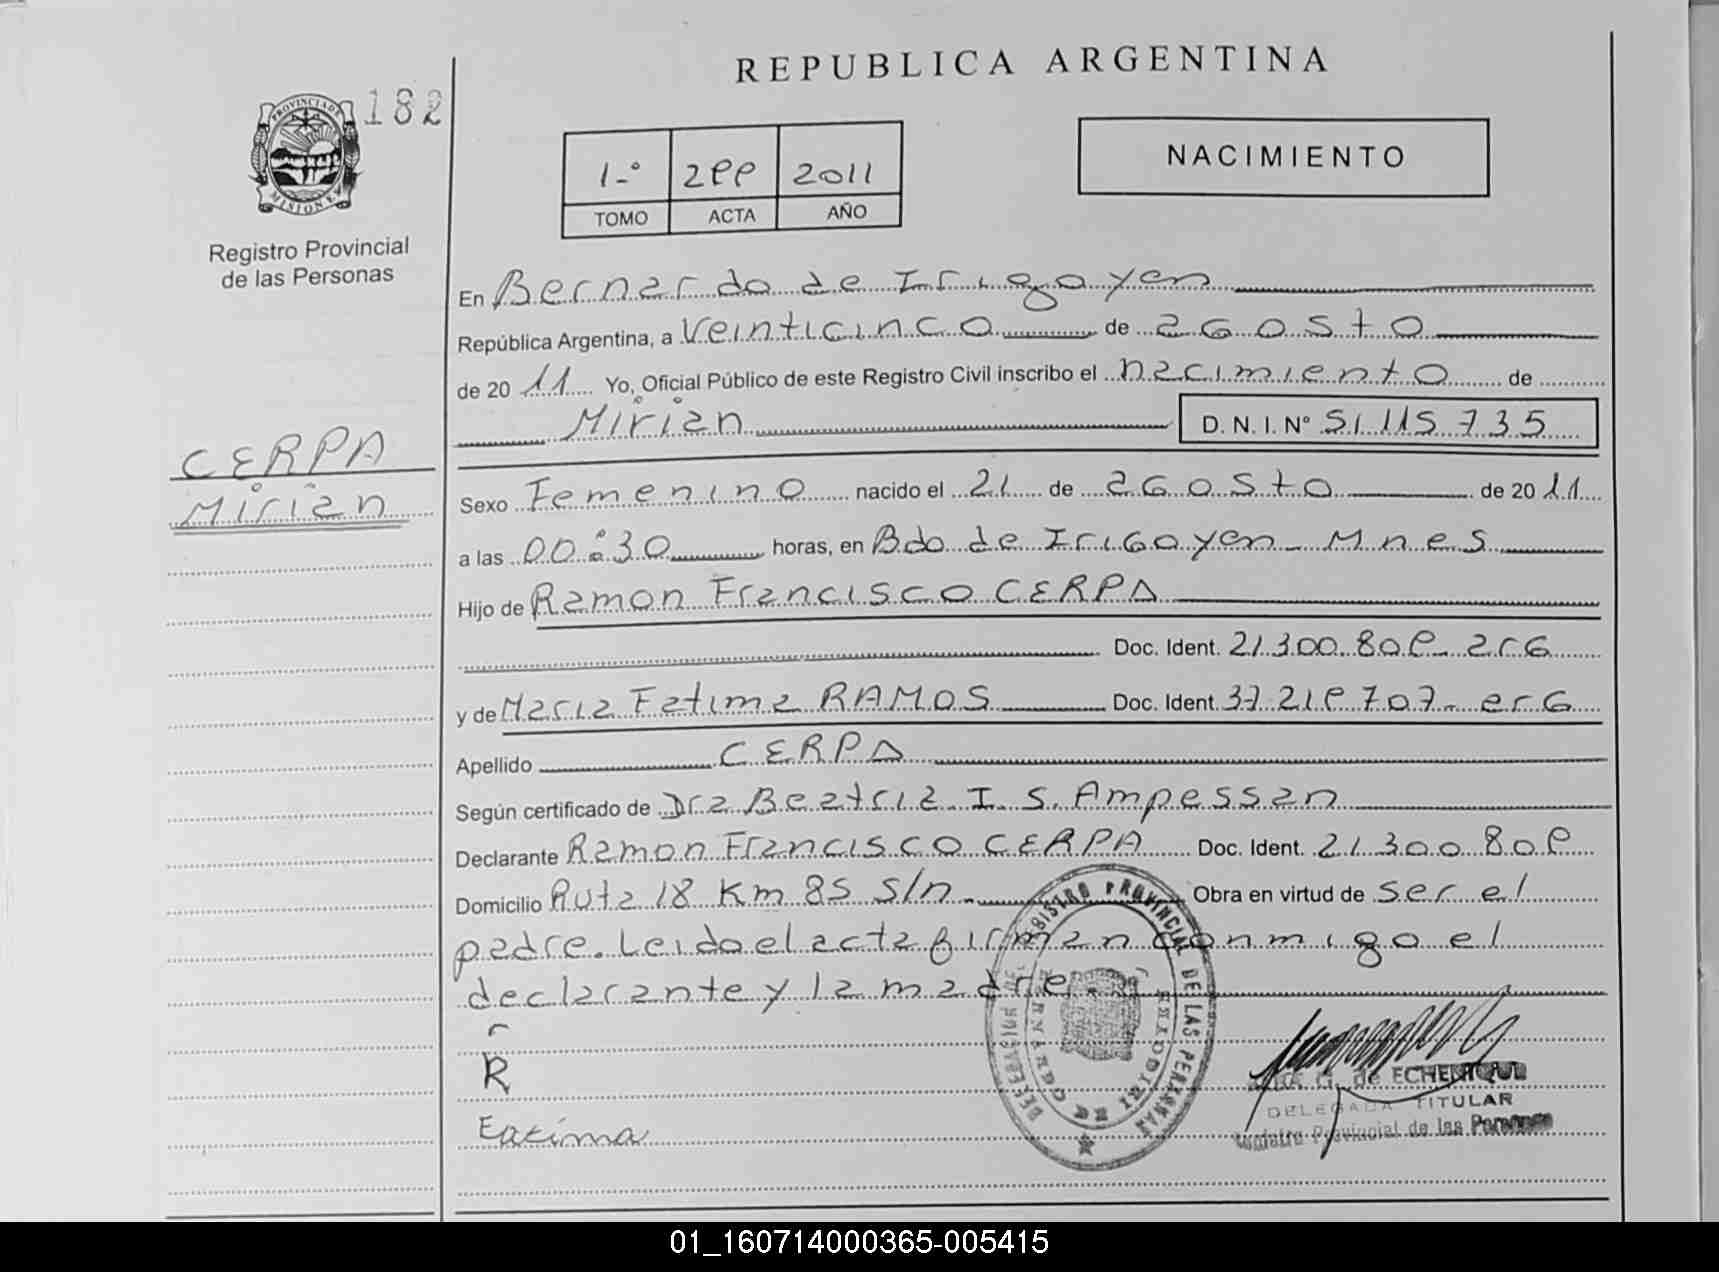 REPUBLICA ARGENTINA
182
PROVINCIA DE
MISIONES
Registro Provincial
de las Personas
1-º 299 2011
TOMO ACTA AÑO
NACIMIENTO
En Bernardo de Irigoyen
República Argentina, a Veinticinco de agosto
de 2011 Yo, Oficial Público de este Registro Civil inscribo el nacimiento de
Mirian D. N. I. Nº 51.115.735
CERPA
Mirian
Sexo Femenino nacido el 21 de agosto de 2011
a las 00:30 horas, en Bdo de Irigoyen - Mnes
Hijo de Ramon Francisco CERPA
Doc. Ident. 21.300.809 - arG
y de Maria Fatima RAMOS Doc. Ident. 37.219.707 - arG
Apellido CERPA
Según certificado de Dra Beatriz I. S. Ampessan
Declarante Ramon Francisco CERPA Doc. Ident. 21.300.809
Domicilio Ruta 18 Km 85 s/n - Obra en virtud de ser el
padre. Leida el acta firman conmigo el
declarante y la madre.
R
Fatima
REGISTRO PROVINCIAL DE LAS PERSONAS
de ECHENIQUE
DELEGADA TITULAR
Registro Provincial de las Personas
01_160714000365-005415